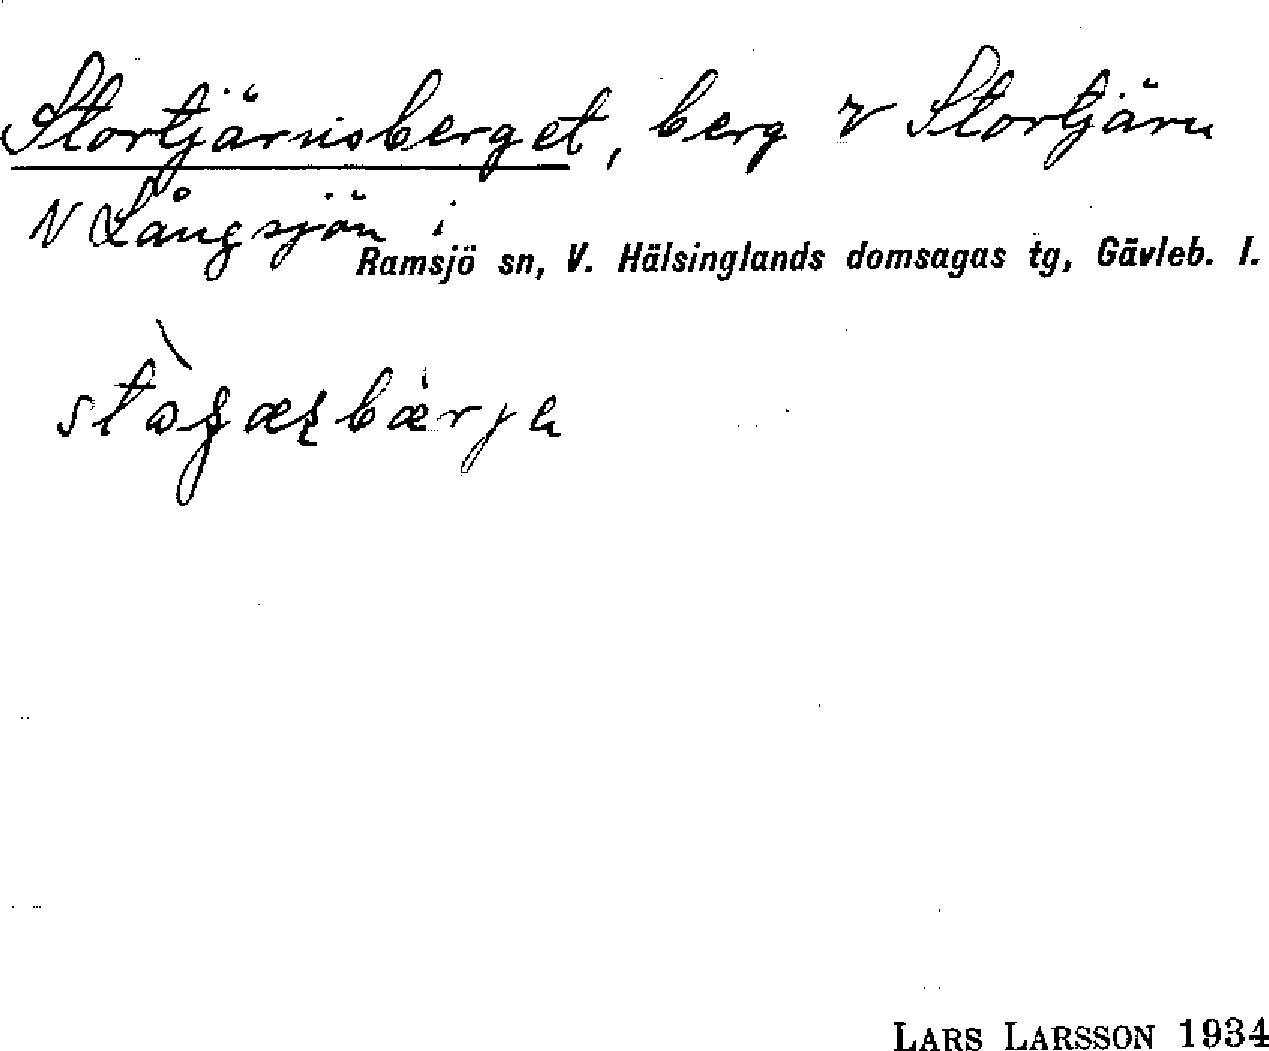 Stortjärnsberget, berg v Stortjärn
N Långsjön i
Ramsjö sn, V. Hälsinglands domsagas tg, Gävleb. l.
LARS LARSSON 1934